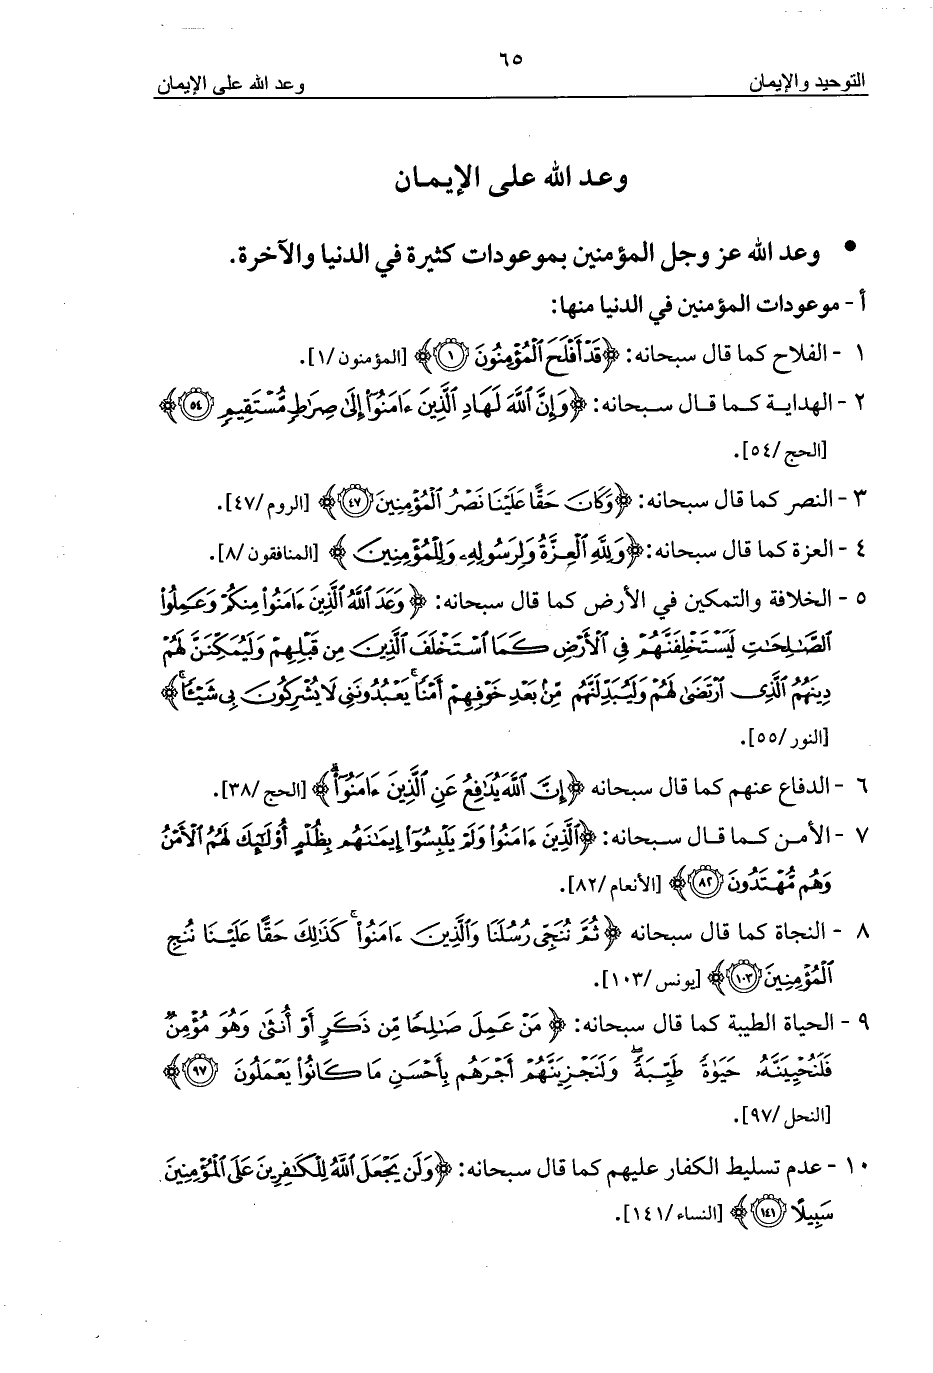 ٦٥
التوحيد والإيمان وعد الله على الإيمان
وعد الله على الإيمان
• وعد الله عز وجل المؤمنين بموعودات كثيرة في الدنيا والآخرة.
أ - موعودات المؤمنين في الدنيا منها:
١ - الفلاح كما قال سبحانه: ﴿قَدْ أَفْلَحَ ٱلْمُؤْمِنُونَ ١﴾ [المؤمنون/١].
٢ - الهداية كما قال سبحانه: ﴿وَإِنَّ ٱللَّهَ لَهَادِ ٱلَّذِينَ ءَامَنُوٓاْ إِلَىٰ صِرَٰطٍ مُّسْتَقِيمٍ ٥٤﴾
[الحج/٥٤].
٣ - النصر كما قال سبحانه: ﴿وَكَانَ حَقًّا عَلَيْنَا نَصْرُ ٱلْمُؤْمِنِينَ ٤٧﴾ [الروم/٤٧].
٤ - العزة كما قال سبحانه: ﴿وَلِلَّهِ ٱلْعِزَّةُ وَلِرَسُولِهِۦ وَلِلْمُؤْمِنِينَ﴾ [المنافقون/٨].
٥ - الخلافة والتمكين في الأرض كما قال سبحانه: ﴿وَعَدَ ٱللَّهُ ٱلَّذِينَ ءَامَنُواْ مِنكُمْ وَعَمِلُواْ
ٱلصَّٰلِحَٰتِ لَيَسْتَخْلِفَنَّهُمْ فِى ٱلْأَرْضِ كَمَا ٱسْتَخْلَفَ ٱلَّذِينَ مِن قَبْلِهِمْ وَلَيُمَكِّنَنَّ لَهُمْ
دِينَهُمُ ٱلَّذِى ٱرْتَضَىٰ لَهُمْ وَلَيُبَدِّلَنَّهُم مِّنۢ بَعْدِ خَوْفِهِمْ أَمْنًا ۚ يَعْبُدُونَنِى لَا يُشْرِكُونَ بِى شَيْـًٔا ۚ﴾
[النور/٥٥].
٦ - الدفاع عنهم كما قال سبحانه ﴿إِنَّ ٱللَّهَ يُدَٰفِعُ عَنِ ٱلَّذِينَ ءَامَنُوٓاْ ۗ﴾ [الحج/٣٨].
٧ - الأمن كما قال سبحانه: ﴿ٱلَّذِينَ ءَامَنُواْ وَلَمْ يَلْبِسُوٓاْ إِيمَٰنَهُم بِظُلْمٍ أُوْلَٰٓئِكَ لَهُمُ ٱلْأَمْنُ
وَهُم مُّهْتَدُونَ ٨٢﴾ [الأنعام/٨٢].
٨ - النجاة كما قال سبحانه ﴿ثُمَّ نُنَجِّى رُسُلَنَا وَٱلَّذِينَ ءَامَنُواْ ۚ كَذَٰلِكَ حَقًّا عَلَيْنَا نُنجِ
ٱلْمُؤْمِنِينَ ١٠٣﴾ [يونس/١٠٣].
٩ - الحياة الطيبة كما قال سبحانه: ﴿مَنْ عَمِلَ صَٰلِحًا مِّن ذَكَرٍ أَوْ أُنثَىٰ وَهُوَ مُؤْمِنٌ
فَلَنُحْيِيَنَّهُۥ حَيَوٰةً طَيِّبَةً ۖ وَلَنَجْزِيَنَّهُمْ أَجْرَهُم بِأَحْسَنِ مَا كَانُواْ يَعْمَلُونَ ٩٧﴾
[النحل/٩٧].
١٠ - عدم تسليط الكفار عليهم كما قال سبحانه: ﴿وَلَن يَجْعَلَ ٱللَّهُ لِلْكَٰفِرِينَ عَلَى ٱلْمُؤْمِنِينَ
سَبِيلًا ١٤١﴾ [النساء/١٤١].